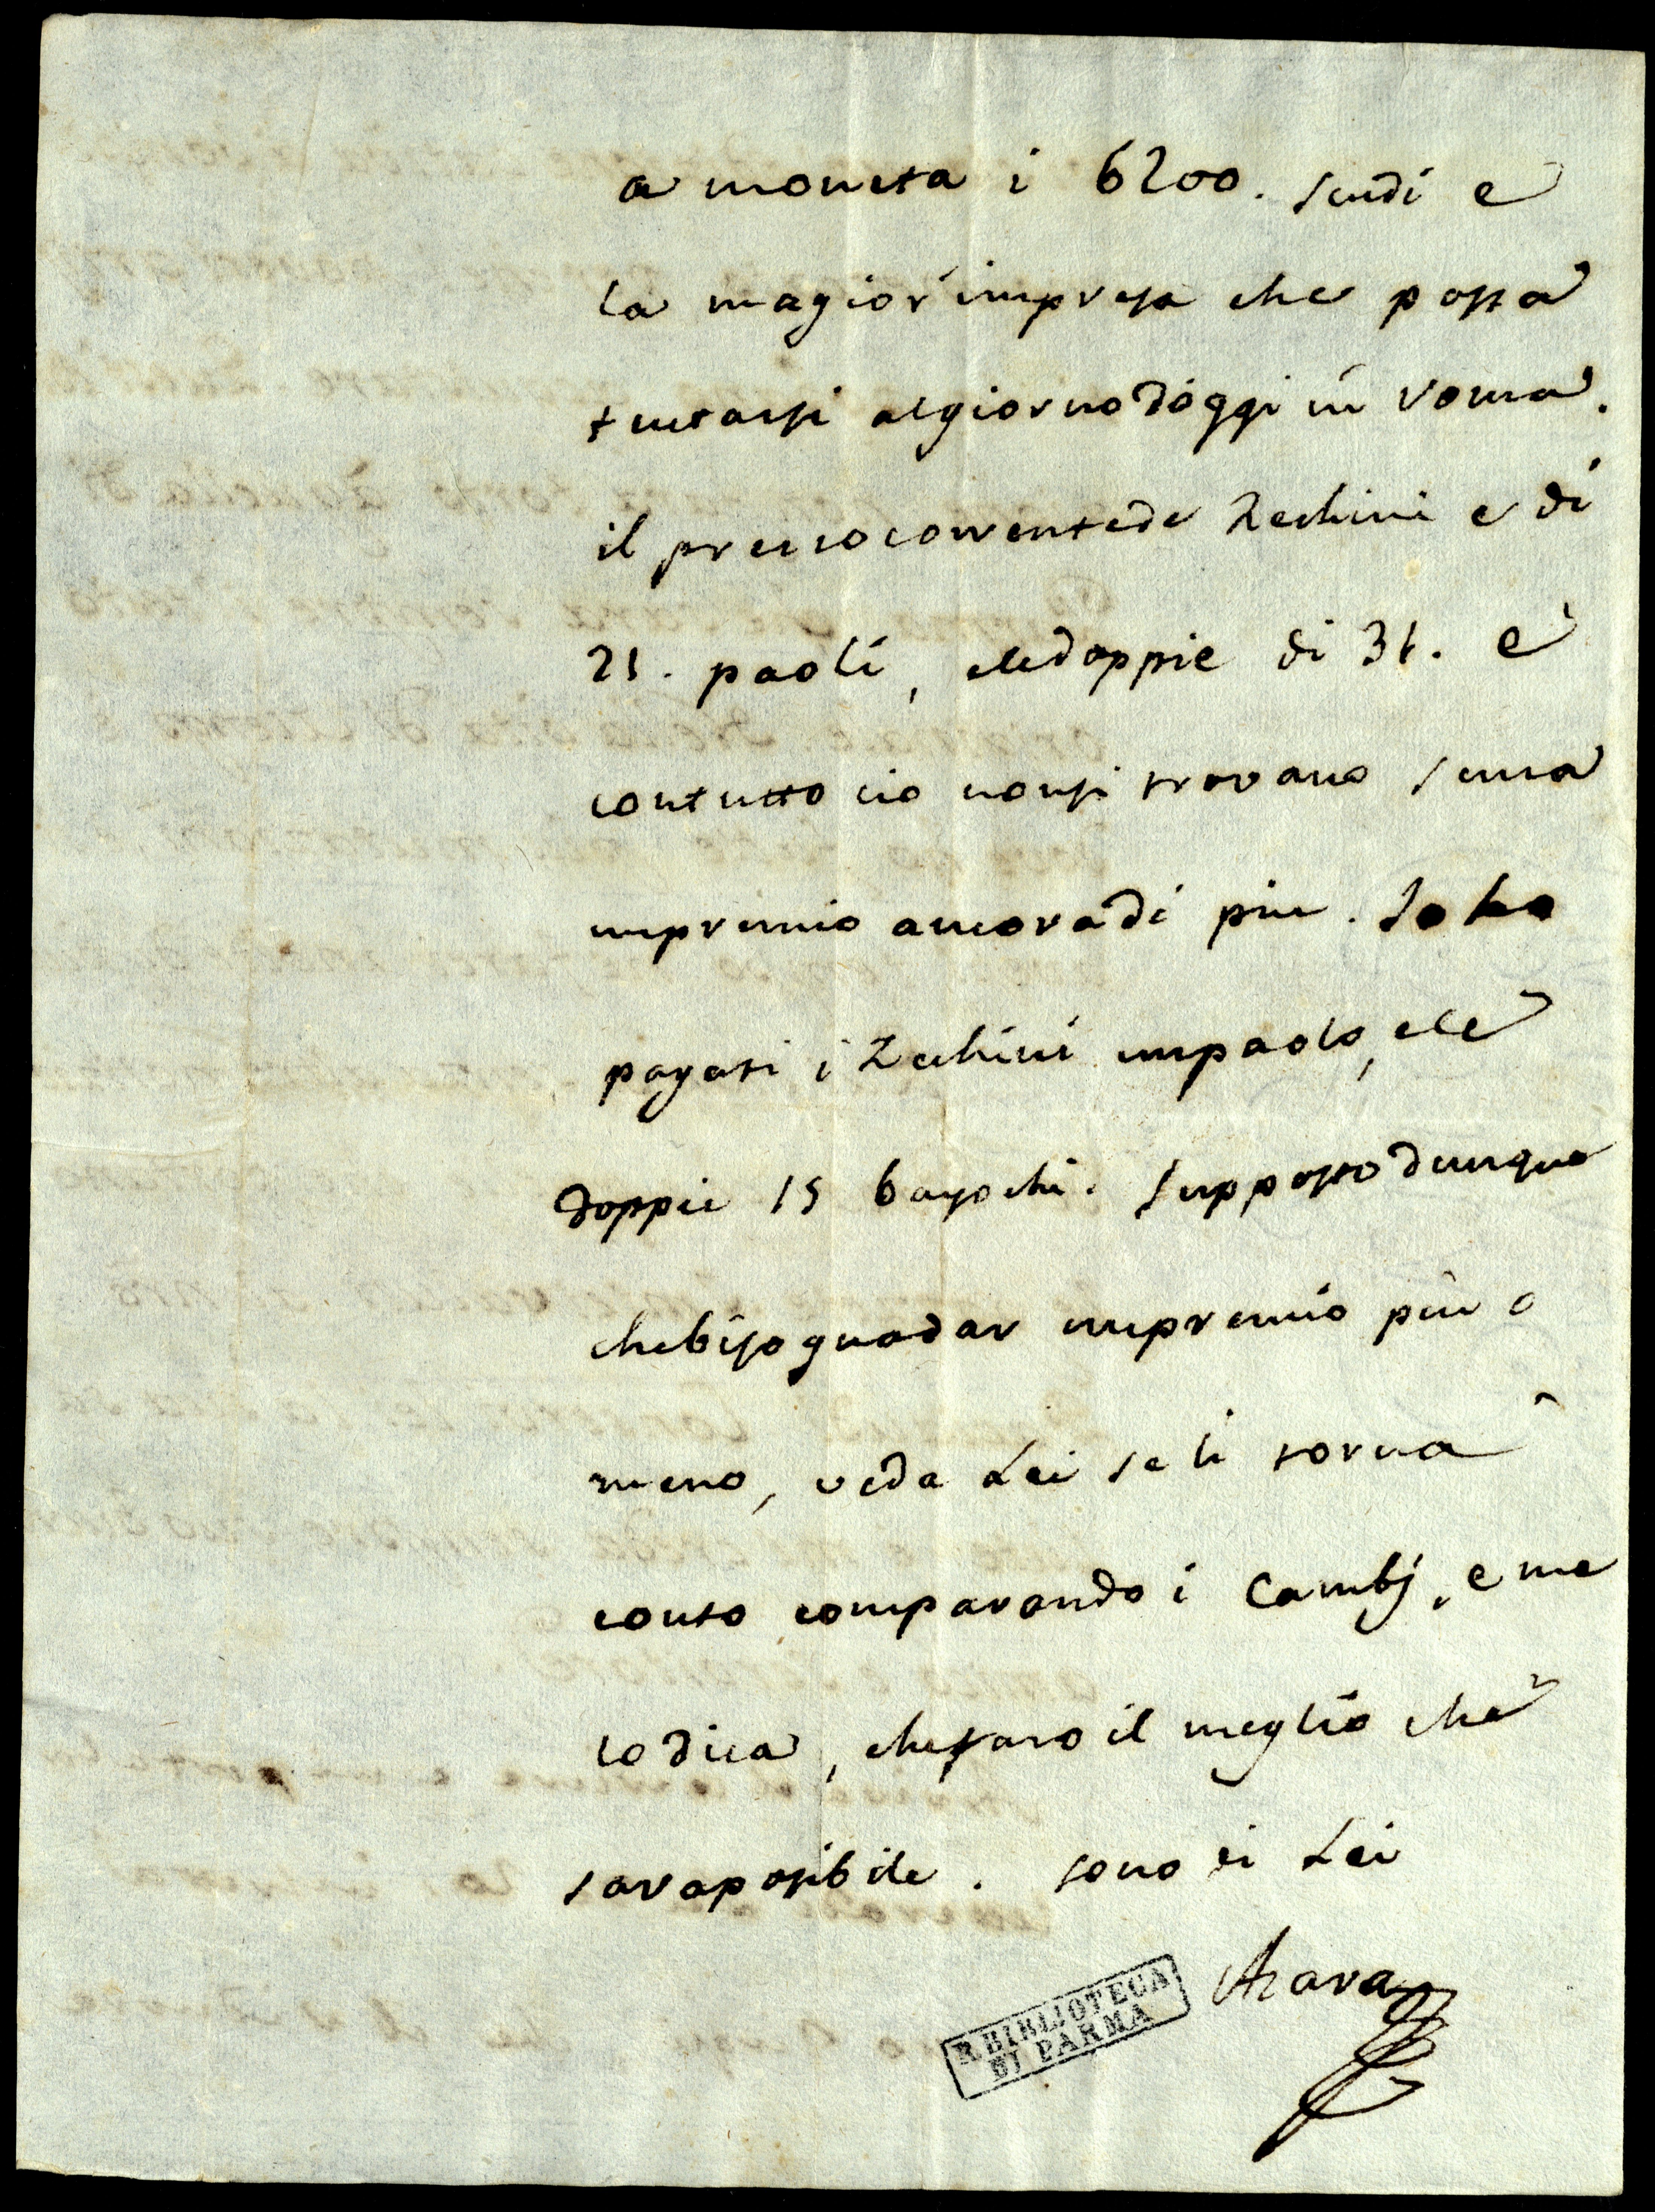 a moneta i 6200. scudi e
la magior impresa che possa
tentarsi al giorno d'oggi in roma.
il prezzo corrente de Zechini e di
21. paoli, e le doppie di 31. e
contutto cio non si trovano senza
un premio ancora di piu. Io ho
pagati i Zechini un paolo, e le
doppie 15 bayochi. supposto dunque
che bisogna dar un premio piu o
meno, veda Lei se li torna
conto comparando i Cambj, e me
lo dica, che faro il meglio che
sara posibile. sono di Lei
Azara
R. BIBLIOTECA
DI PARMA